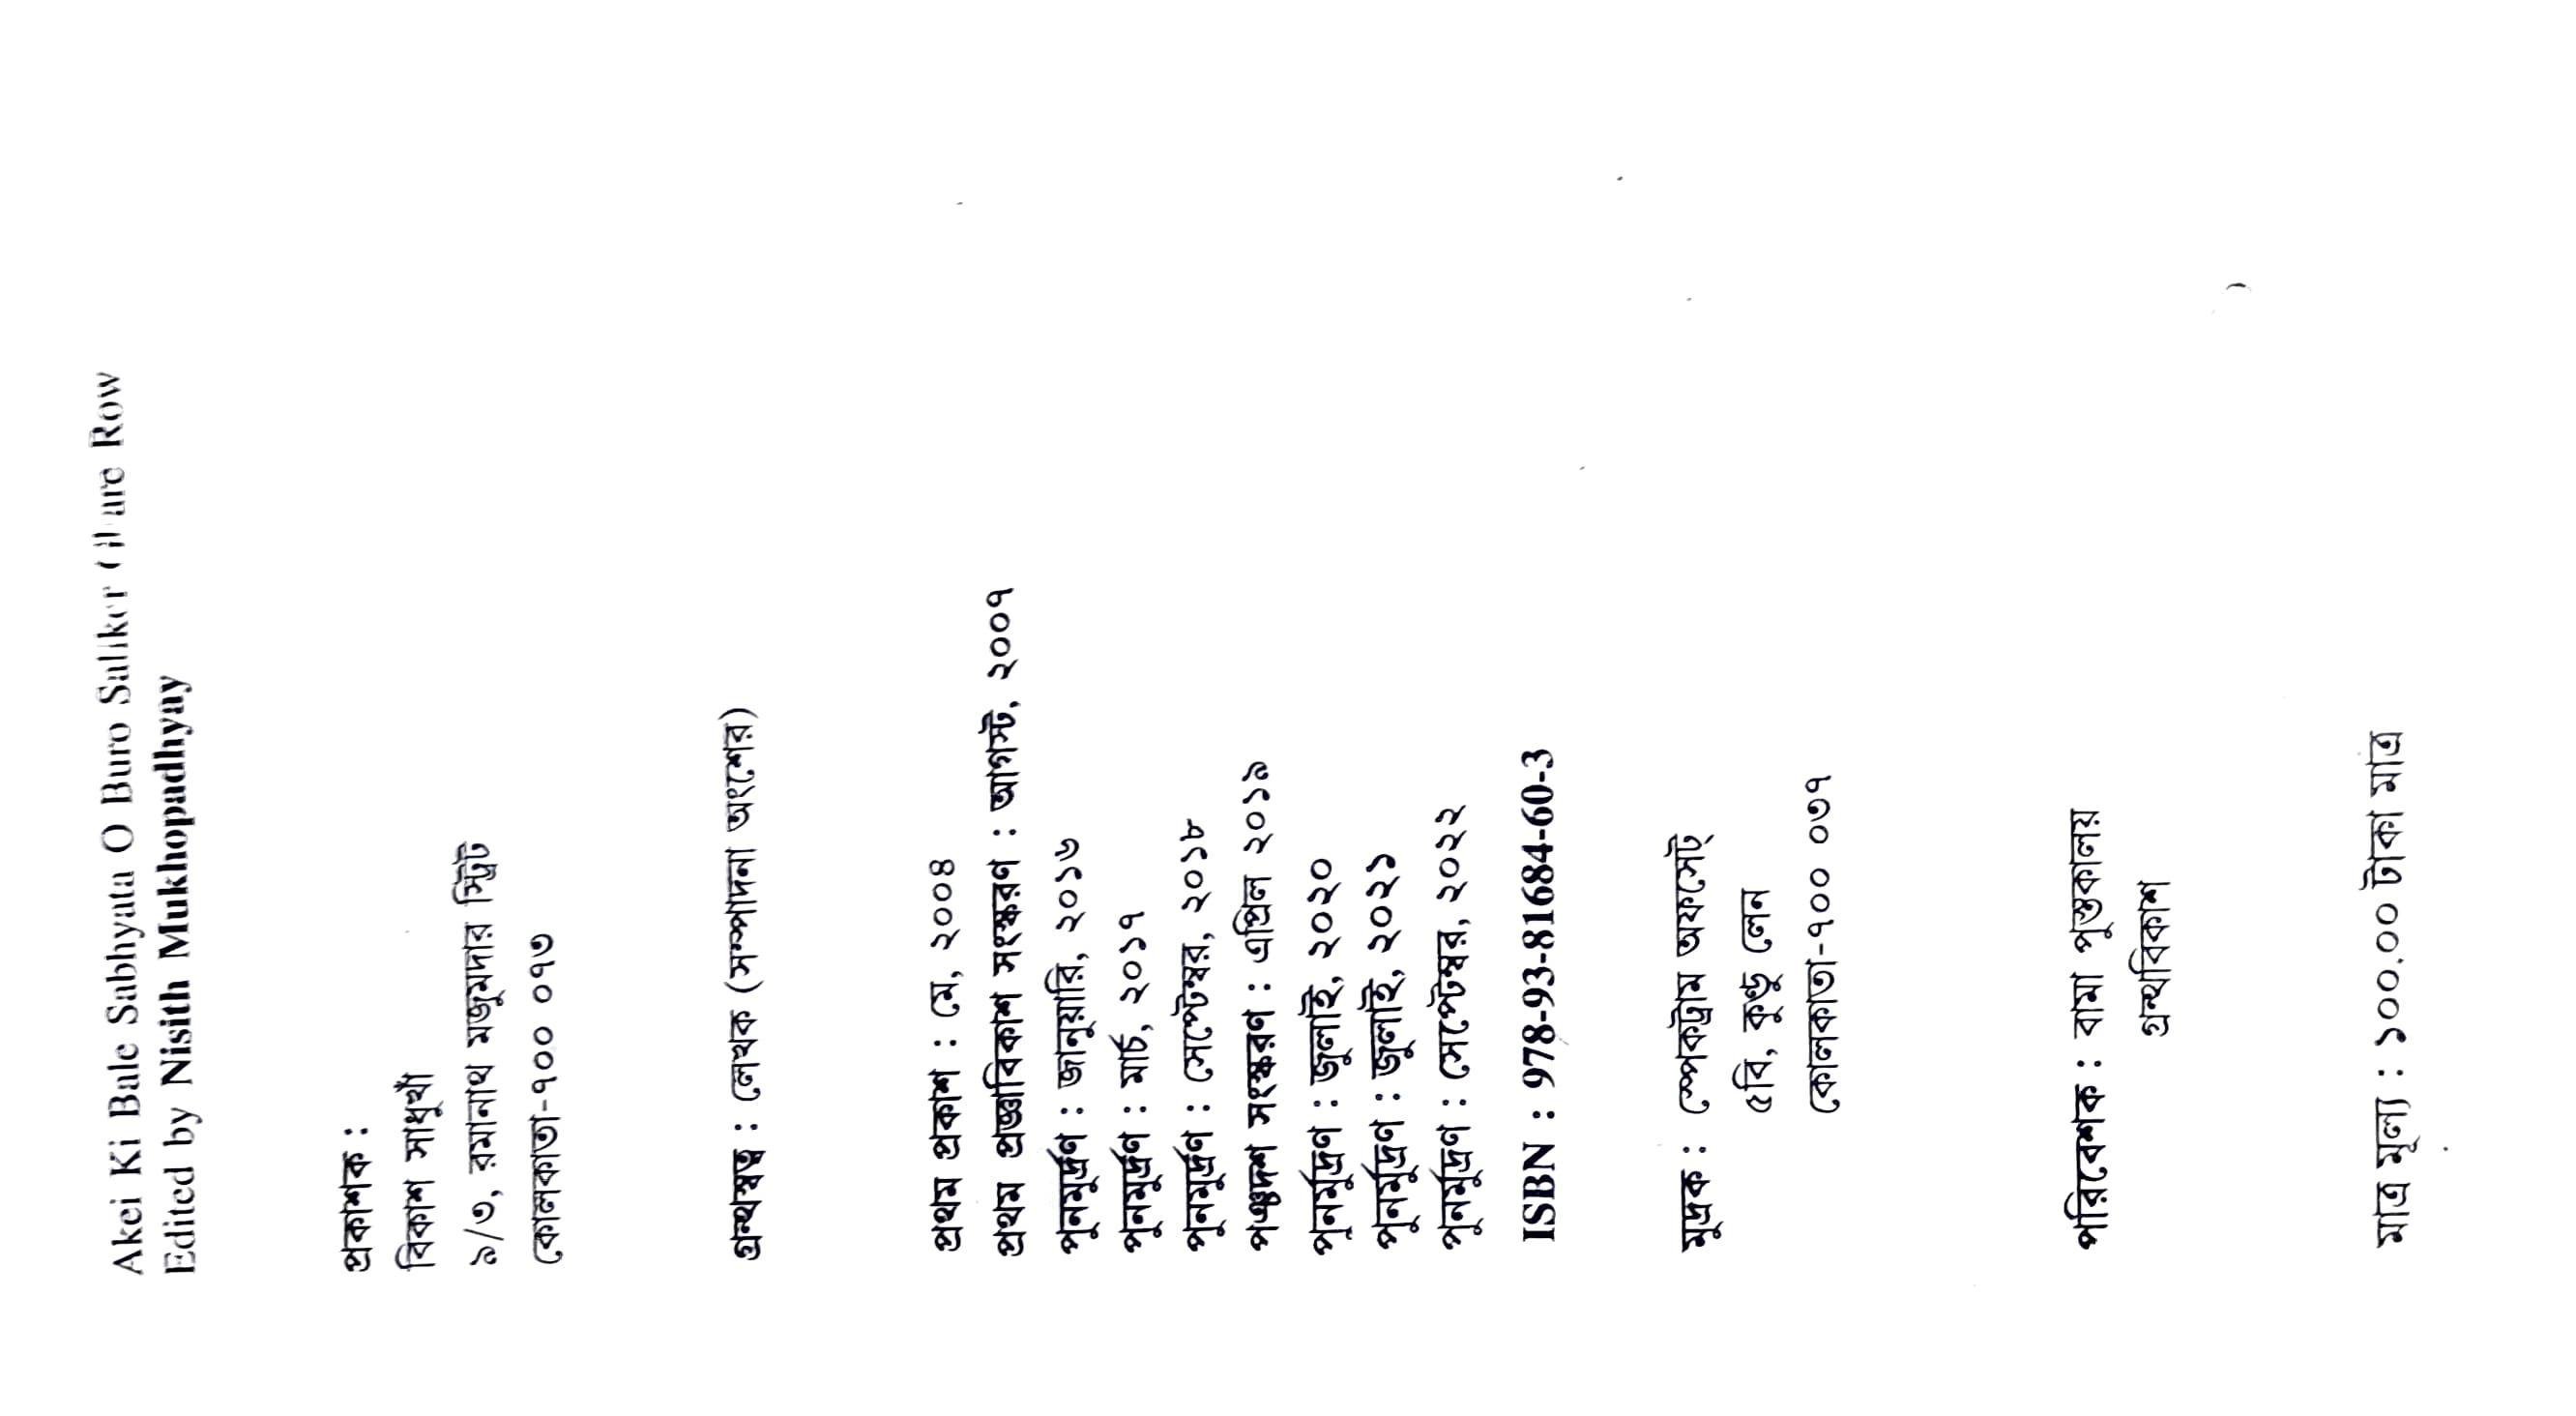 Akei Ki Bale Sabhyata O Buro Saliker Row
Edited by Nisith Mukhopadhyay
প্রকাশক :
বিকাশ সাধুখাঁ
১/৩, রমানাথ মজুমদার স্ট্রিট
কোলকাতা-৭০০ ০৭৩
গ্রন্থস্বত্ত্ব : লেখক (সম্পাদনা অংশের)
প্রথম প্রকাশ : মে, ২০০৪
প্রথম প্রজ্ঞাবিকাশ সংস্করণ : আগস্ট, ২০০৭
পুনর্মুদ্রণ : জানুয়ারি, ২০১৬
পুনর্মুদ্রণ : মার্চ, ২০১৭
পুনর্মুদ্রণ : সেপ্টেম্বর, ২০১৮
পঞ্চদশ সংস্করণ : এপ্রিল ২০১৯
পুনর্মুদ্রণ : জুলাই, ২০২০
পুনর্মুদ্রণ : জুলাই, ২০২১
পুনর্মুদ্রণ : সেপ্টেম্বর, ২০২২
ISBN : 978-93-81684-60-3
মুদ্রক : স্পেকট্রাম অফসেট্
৫বি, কুন্ডু লেন
কোলকাতা-৭০০ ০৩৭
পরিবেশক : বামা পুস্তকালয়
গ্রন্থবিকাশ
মাত্র মূল্য : ১০০.০০ টাকা মাত্র